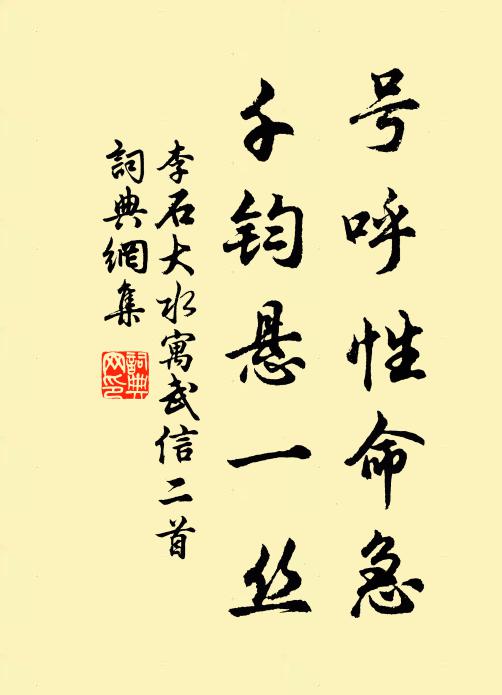 号呼性命急
千钧悬一丝
李石大水寓武信二首
詞典網集
詞典網印